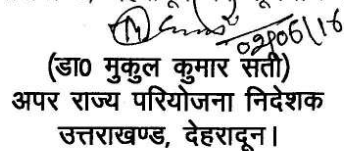 02/06/16
(डा0 मुकुल कुमार सती)
अपर राज्य परियोजना निदेशक
उत्तराखण्ड, देहरादून।